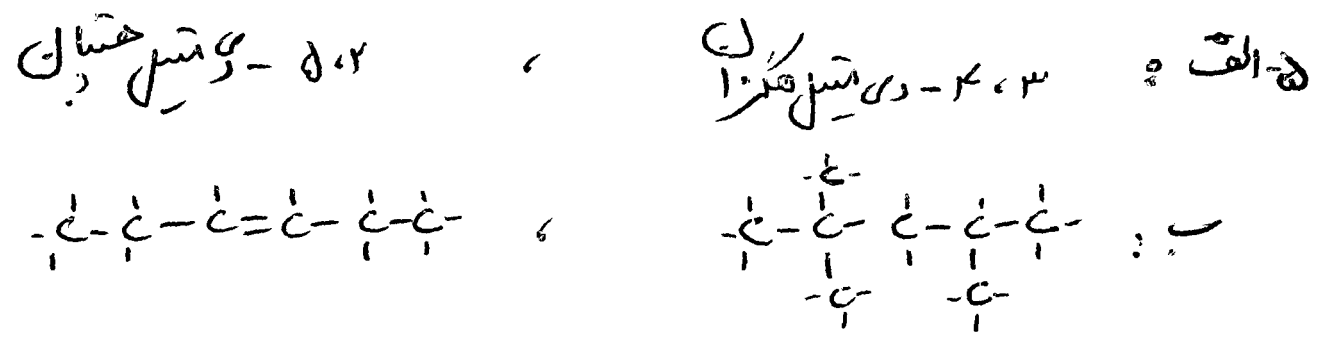 ۵-الف : ۳ ، ۴ – دی متیل هگزان ، ۲ ، ۵ – دی متیل هپتان
-C-
-C-C-C=C-C-C- ، -C-C-C-C-C- ب :
-C- -C-